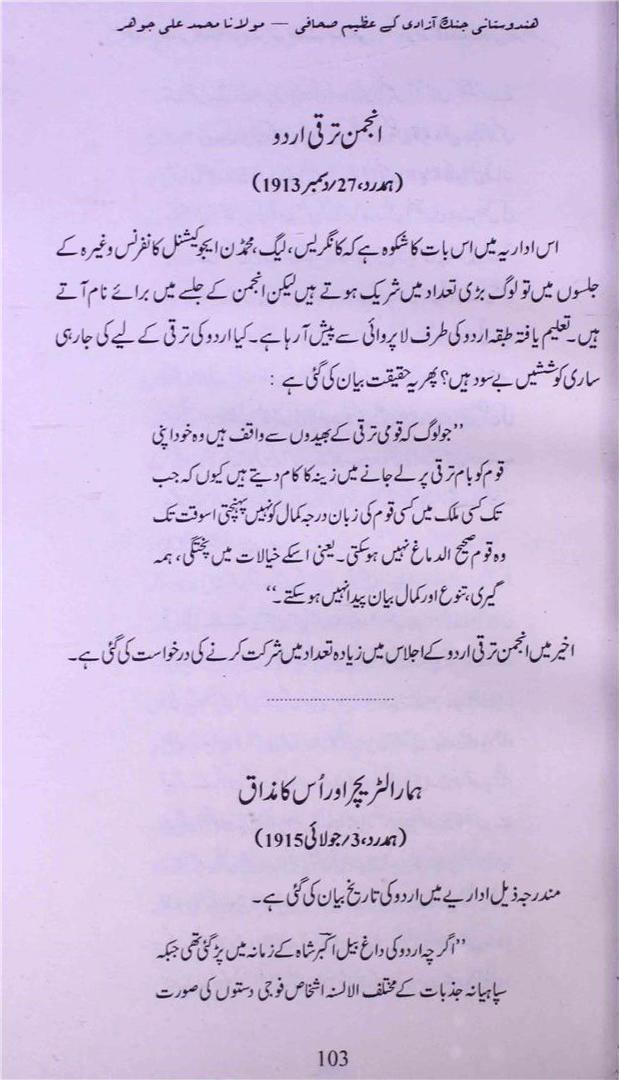 ہندوستانی جنگ آزادی کے عظیم صحافی — مولانا محمد علی جوہر
انجمن ترقی اردو
(ہمدرد، 27/دسمبر 1913)
اس اداریہ میں اس بات کا شکوہ ہے کہ کانگریس، لیگ، محمڈن ایجوکیشنل کانفرنس وغیرہ کے
جلسوں میں تو لوگ بڑی تعداد میں شریک ہوتے ہیں لیکن انجمن کے جلسے میں برائے نام آتے
ہیں۔ تعلیم یافتہ طبقہ اردو کی طرف لاپروائی سے پیش آرہا ہے۔ کیا اردو کی ترقی کے لیے کی جارہی
ساری کوششیں بے سود ہیں؟ پھر یہ حقیقت بیان کی گئی ہے :
”جو لوگ کہ قومی ترقی کے بھیدوں سے واقف ہیں وہ خود اپنی
قوم کو بام ترقی پر لے جانے میں زینہ کا کام دیتے ہیں کیوں کہ جب
تک کسی ملک میں کسی قوم کی زبان درجہ کمال کو نہیں پہنچتی اسوقت تک
وہ قوم صحیح الدماغ نہیں ہوسکتی۔ یعنی اسکے خیالات میں پختگی، ہمہ
گیری، تنوع اور کمال بیان پیدا نہیں ہوسکتے۔“
اخیر میں انجمن ترقی اردو کے اجلاس میں زیادہ تعداد میں شرکت کرنے کی درخواست کی گئی ہے۔
ہمارا لٹریچر اور اُس کا مذاق
(ہمدرد، 3/جولائی 1915)
مندرجہ ذیل اداریے میں اردو کی تاریخ بیان کی گئی ہے۔
”اگرچہ اردو کی داغ بیل اکبر شاہ کے زمانہ میں پڑگئی تھی جبکہ
سپاہیانہ جذبات کے مختلف الالسنہ اشخاص فوجی دستوں کی صورت
103